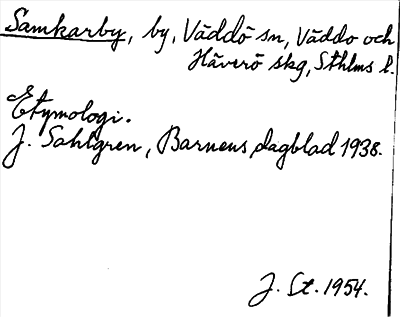 Samkarby, by, Väddö sn, Väddo och
Häverö skg, Sthlms l.
Etymologi.
J. Sahlgren, Barnens dagblad 1938.
J. St. 1954.